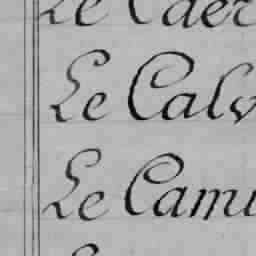 Le Caer
Le Calv
Le Camu